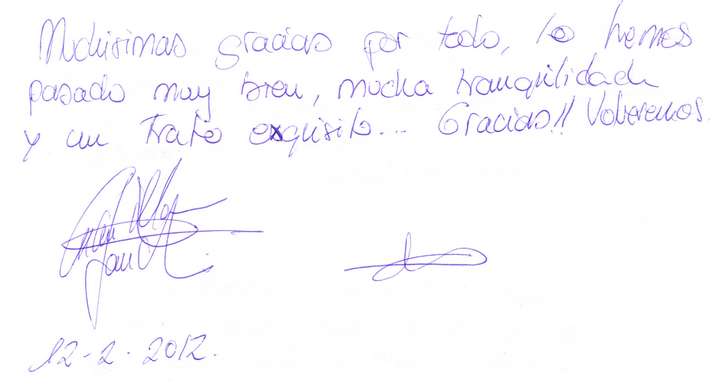 Muchisimas gracias por todo, lo hemos
pasado muy bien, mucha tranquilidad
y un trato exquisito... Gracias!! Volveremos.
12-2-2012.